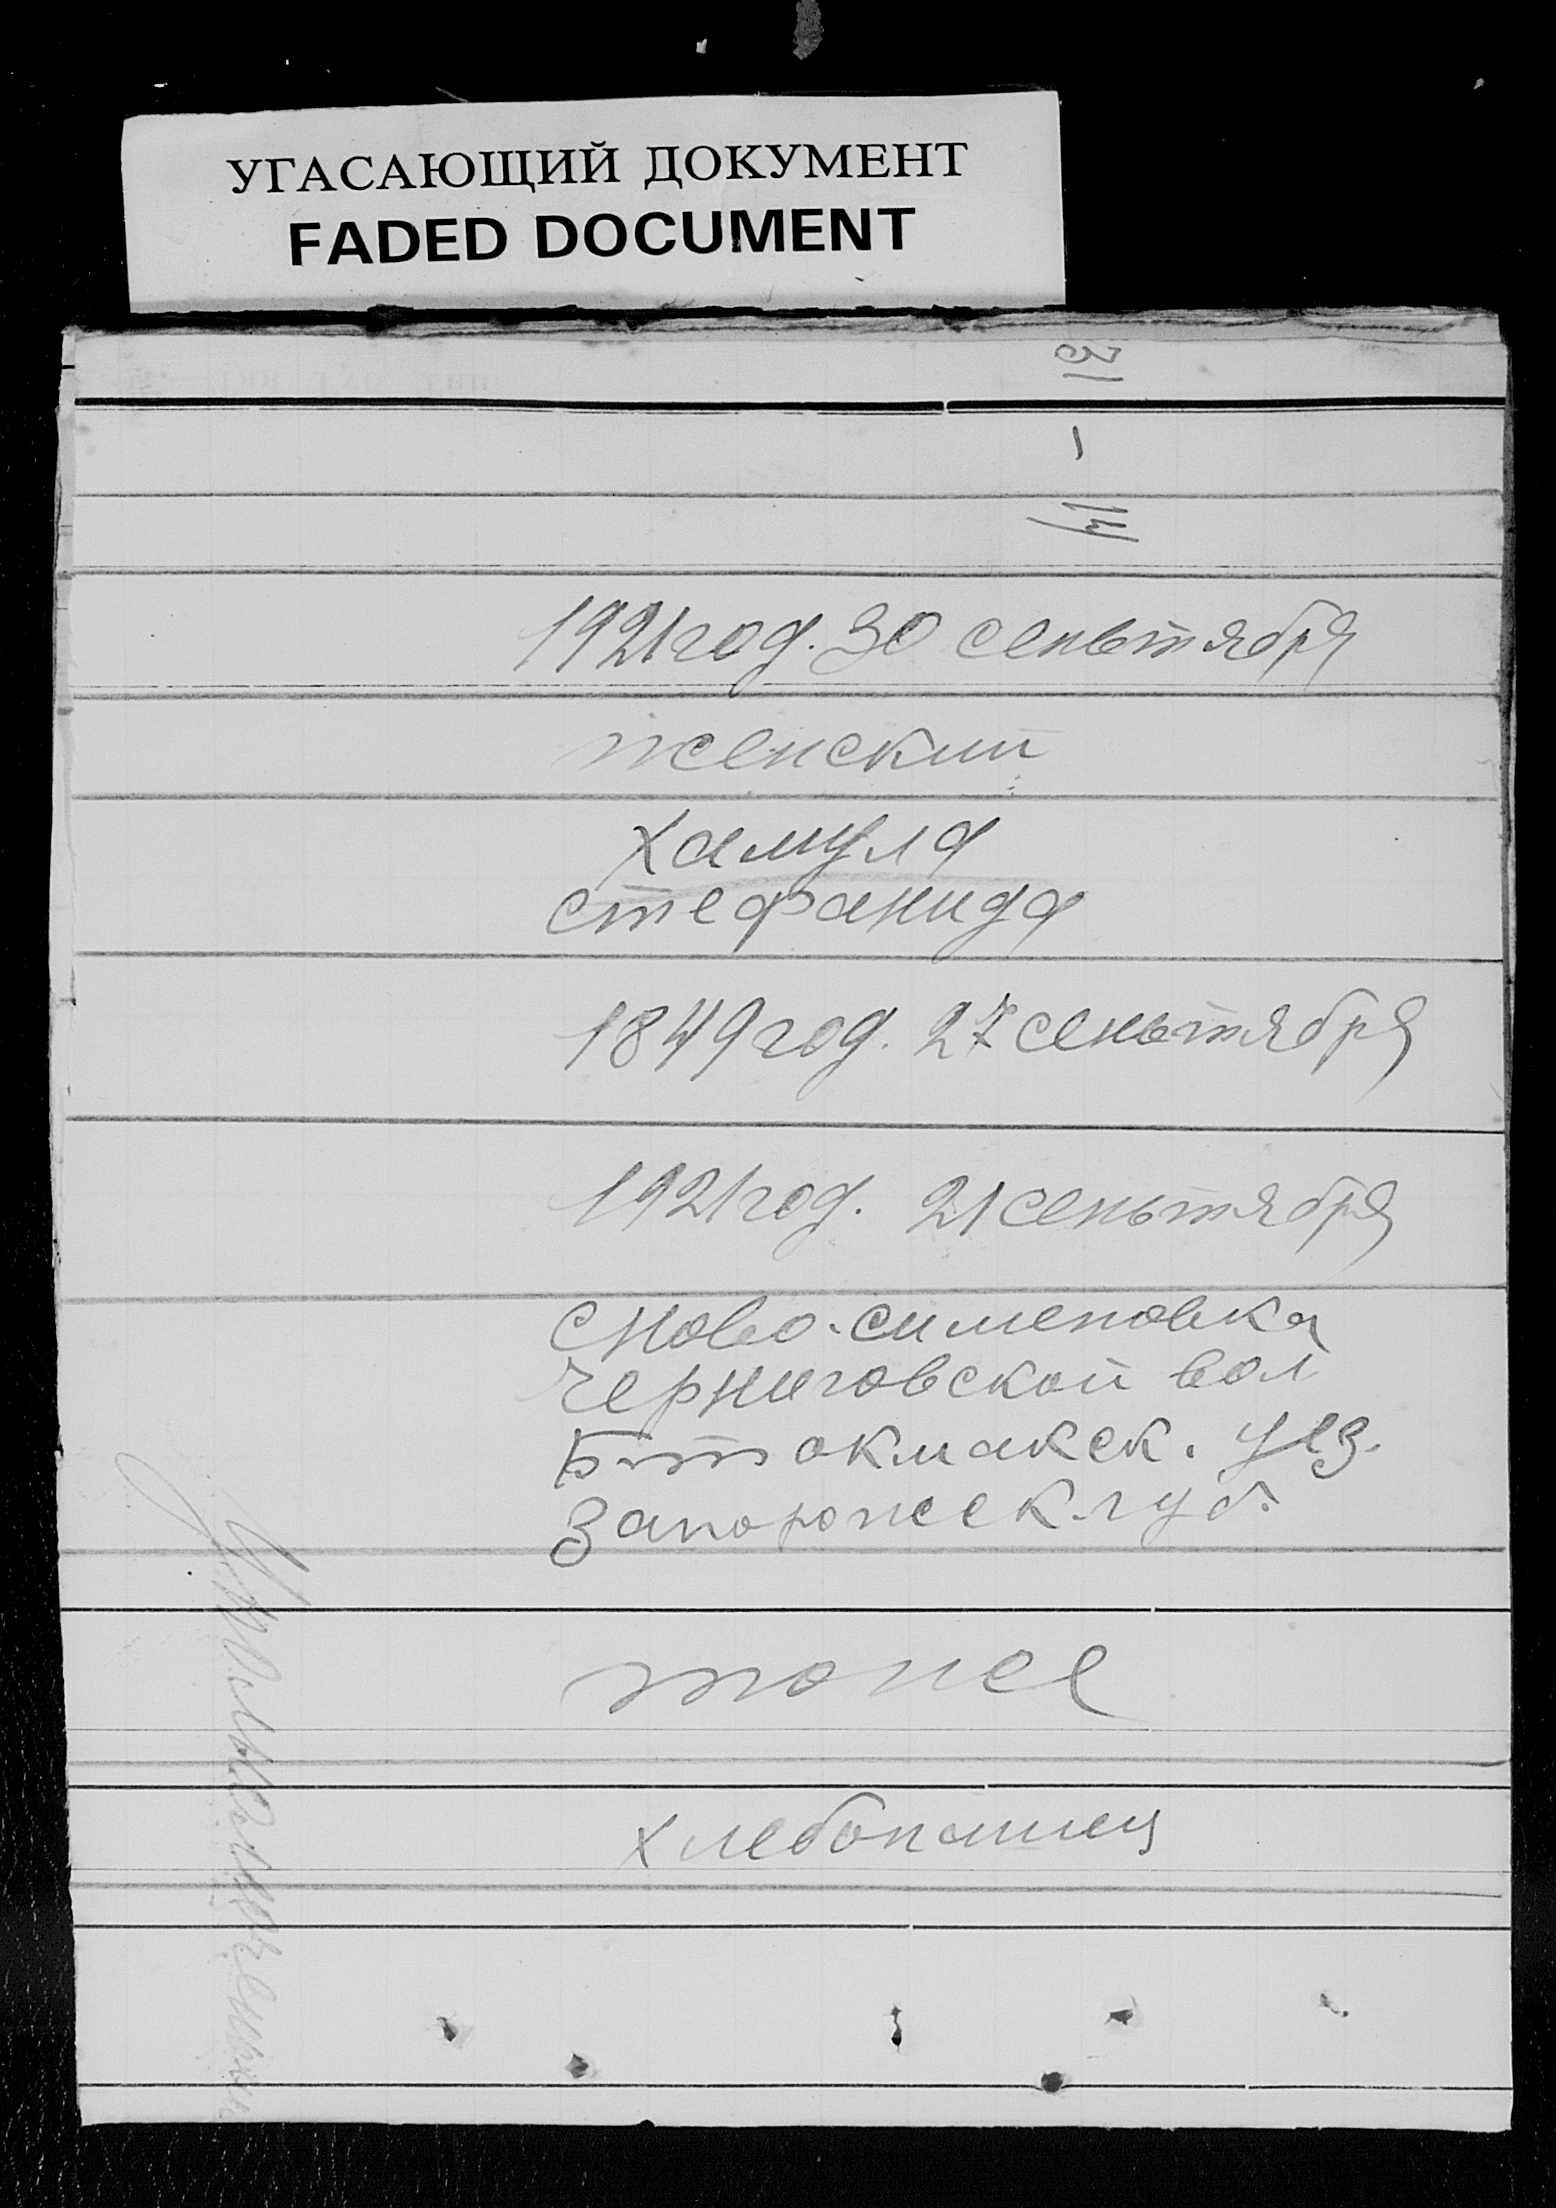 УГАСАЮЩИЙ ДОКУМЕНТ
FADED DOCUMENT
31
14
1921 год. 30 сеньтября
женский
Хамула
стефанида
1849 год. 27 сеньтября
1921 год. 21 сеньтября
с Ново-сименовка
Черниговской вол
Б-токмакск. уез.
Запорожск. губ.
тоже
хлебопашец